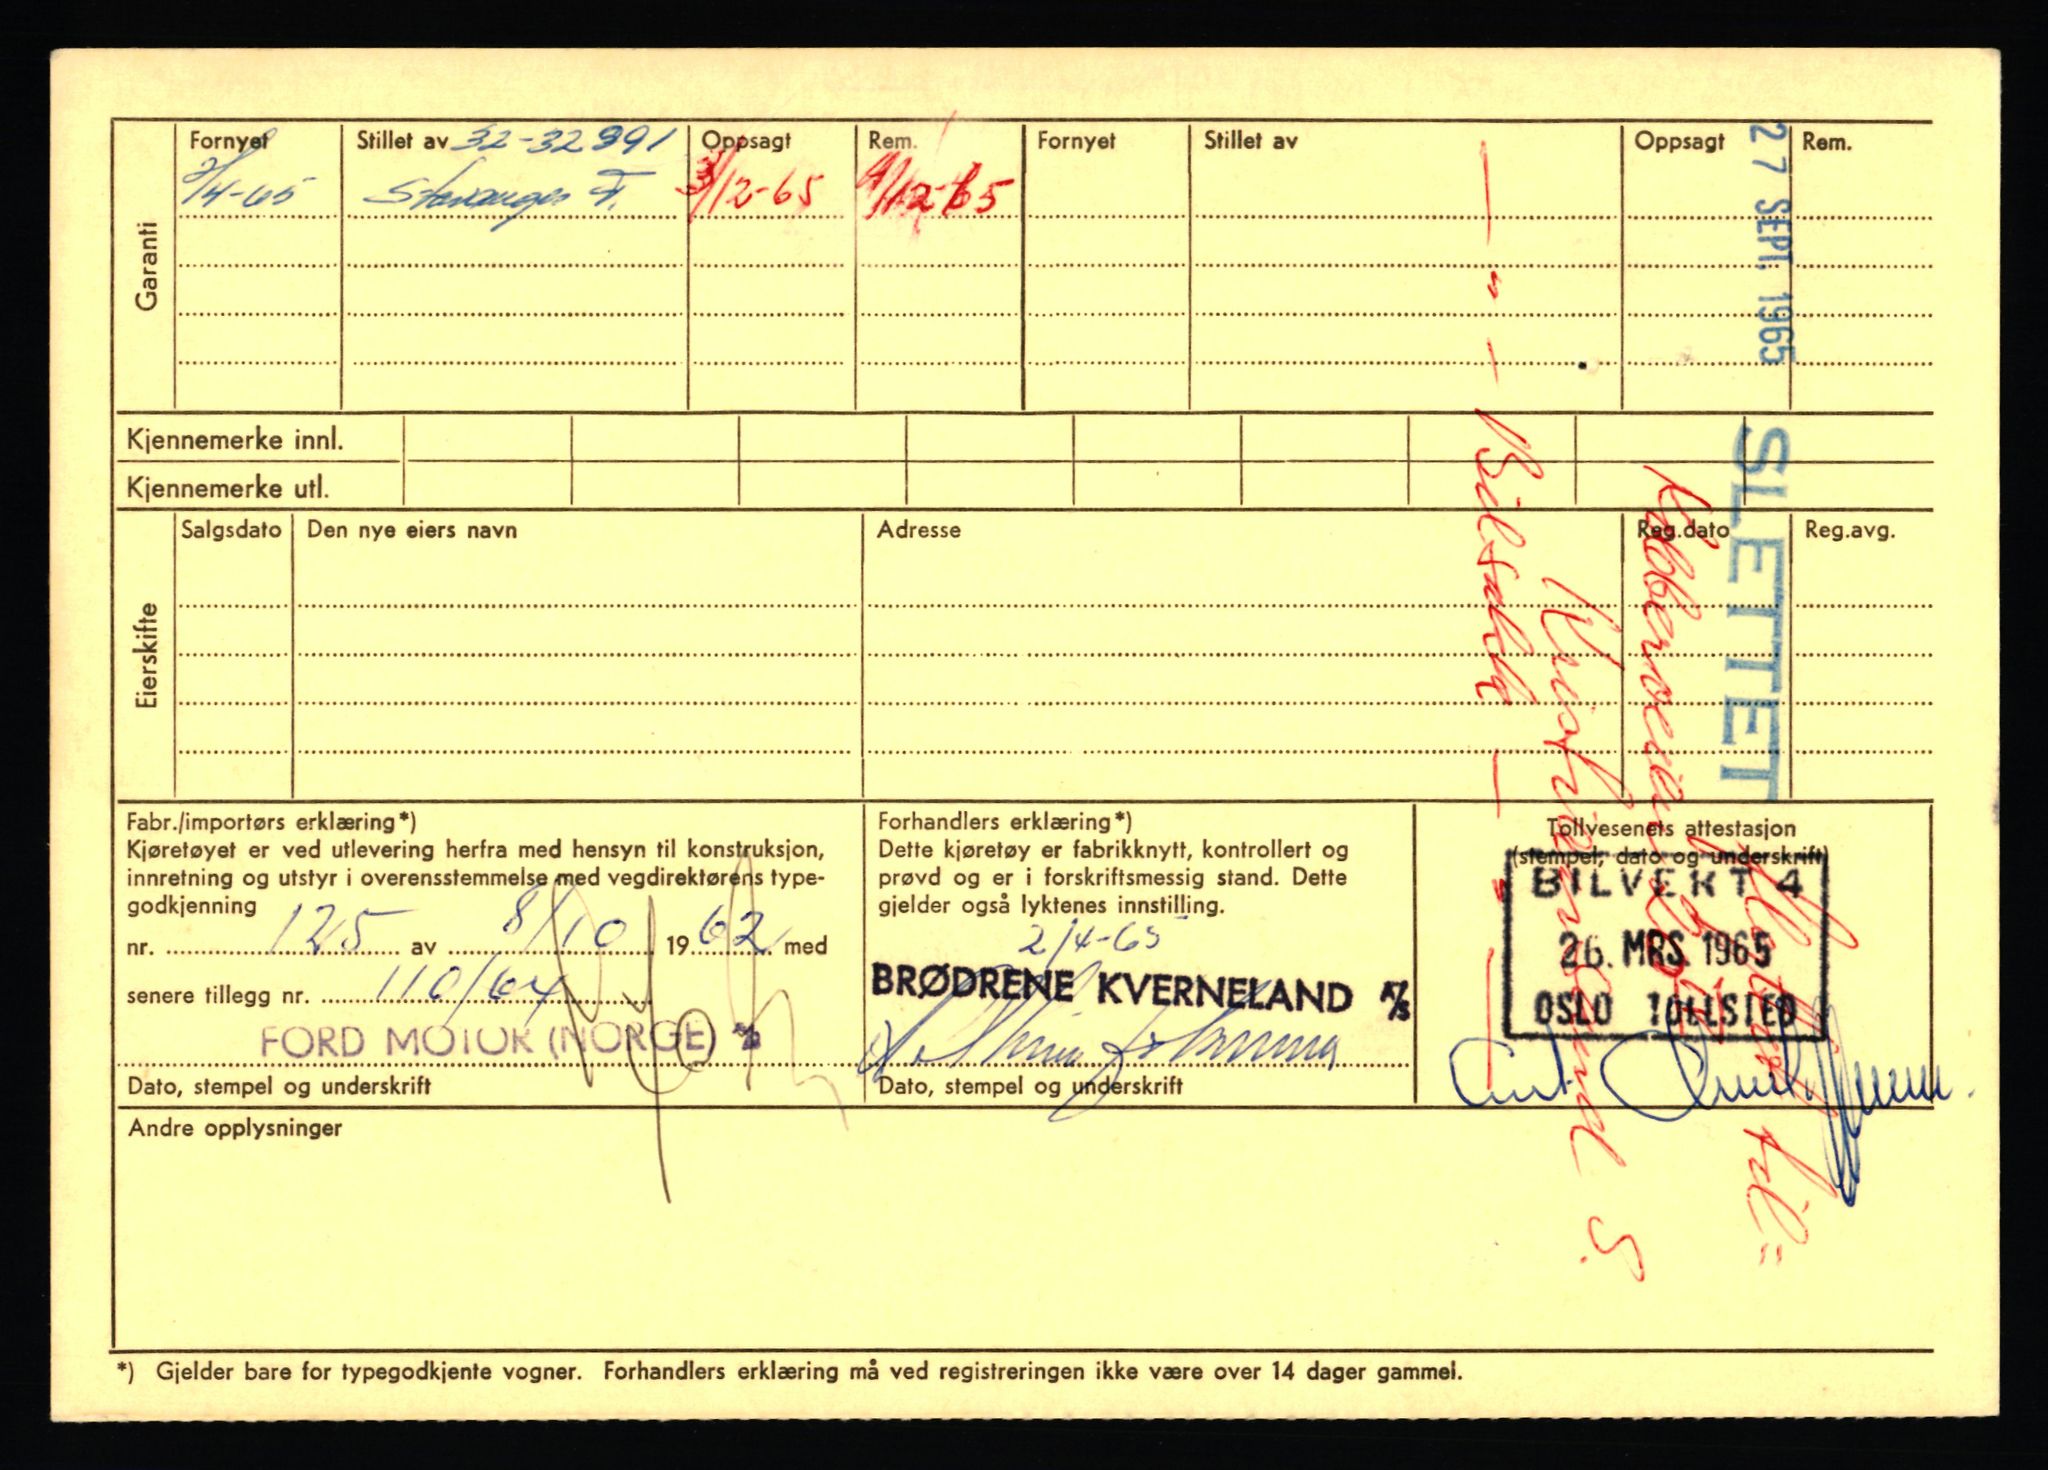 Garanti
Fornyet
Stillet av 32-32391
Oppsagt
Rem.
Fornyet
Stillet av
Oppsagt
Rem.
2/4-65
Stavanger F.
3/12-65
/12-65
Kjennemerke innl.
Kjennemerke utl.
Eierskifte
Salgsdato
Den nye eiers navn
Adresse
Reg.dato
Reg.avg.
27 SEPT. 1965
SLETTET
Flyttet til =
Kobberveien
Kristiansand S.
— " — Bilsakk — " —
Fabr./importørs erklæring*)
Kjøretøyet er ved utlevering herfra med hensyn til konstruksjon,
innretning og utstyr i overensstemmelse med vegdirektørens type-
godkjenning
nr. 125 av 8/10 1962 med
senere tillegg nr. 110/64
FORD MOTOR (NORGE) A/S
Dato, stempel og underskrift
Forhandlers erklæring*)
Dette kjøretøy er fabrikknytt, kontrollert og
prøvd og er i forskriftsmessig stand. Dette
gjelder også lyktenes innstilling.
2/4-65
BRØDRENE KVERNELAND A/S
Dato, stempel og underskrift
Tollvesenets attestasjon
(stempel, dato og underskrift)
BILVEKT 4
26. MRS. 1965
OSLO TOLLSTED
Andre opplysninger
*) Gjelder bare for typegodkjente vogner. Forhandlers erklæring må ved registreringen ikke være over 14 dager gammel.